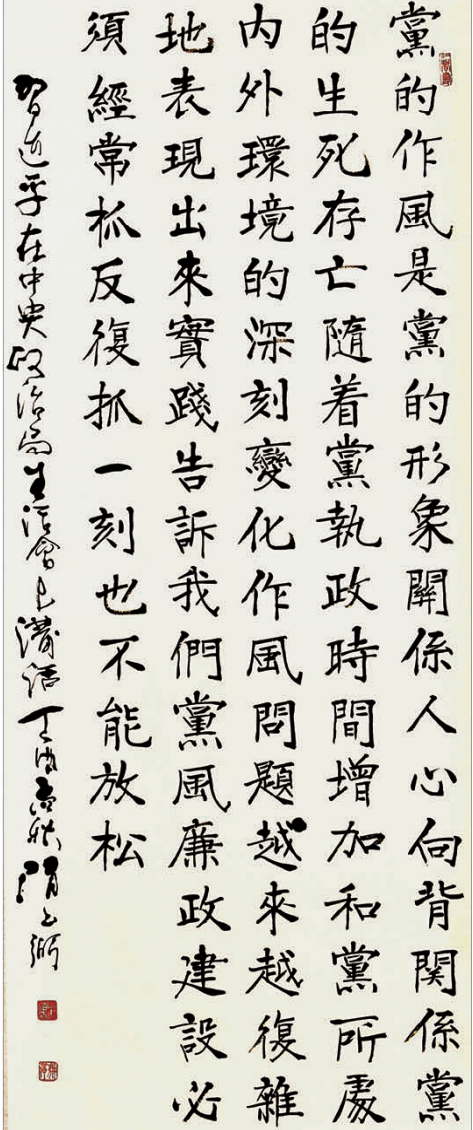 黨的作風是黨的形象關係人心向背関係黨
的生死存亡隨着黨執政時間增加和黨所處
内外環境的深刻變化作風問題越來越復雜
地表現出來實踐告訴我們黨風廉政建設必
須經常抓反復抓一刻也不能放松
習近平在中央政治局生活會上講話丁酉